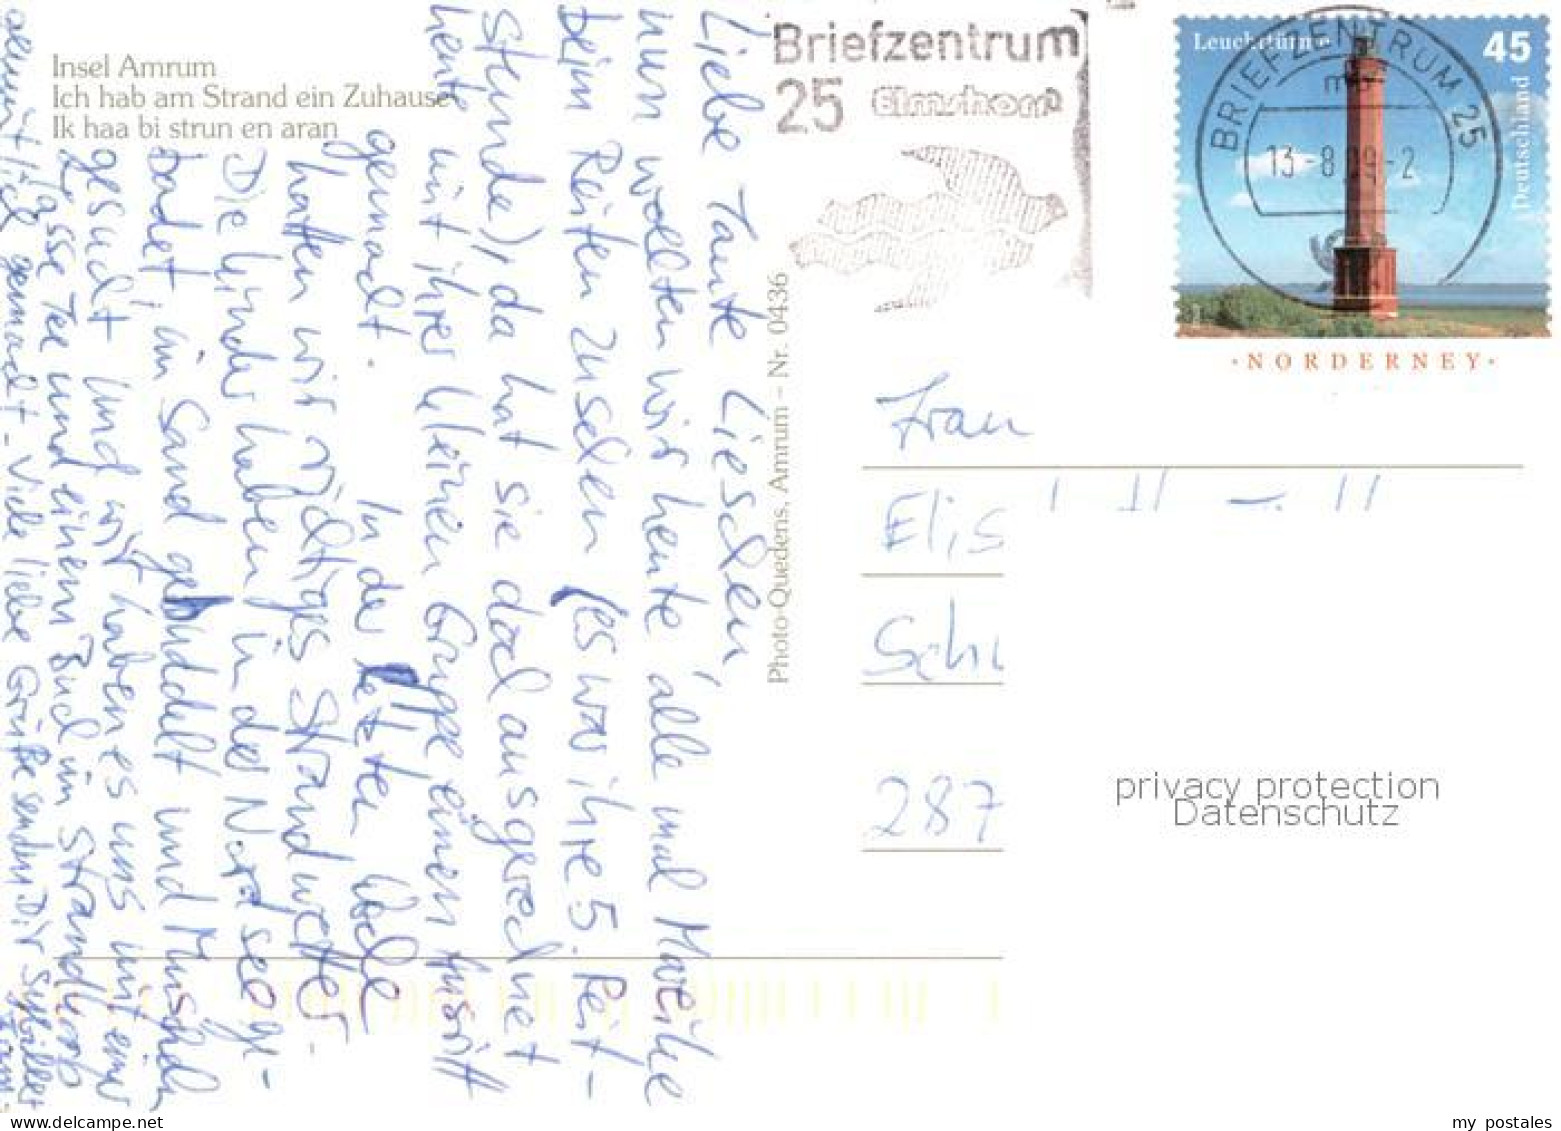 Insel Amrum
Ich hab am Strand ein Zuhause
Ik haa bi strun en aran
Liebe Tante Lieschen,
nun wollten wir heute alle mal Mareike
beim Reiten zusehen (es war ihre 5. Reit-
stunde), da hat sie doch ausgerechnet
heute mit ihrer kleinen Gruppe einen Ausritt
gemacht. In der letzten Woche
hatten wir richtiges Strandwetter.
Die Kinder haben in der Nordsee ge-
badet, im Sand gebuddelt und Muscheln
gesucht und wir haben es uns mit einer
Tasse Tee und einem Buch im Strandkorb
gemütlich gemacht. Viele liebe Grüße senden Dir Sybille +
Fam.
Photo-Quedens, Amrum – Nr. 0436
Briefzentrum
25 Elmshorn
Leuchttürme
45
Deutschland
BRIEFZENTRUM 25
13-8 09-2
·NORDERNEY·
Frau
Elis
Sch
287
privacy protection
Datenschutz
my postales